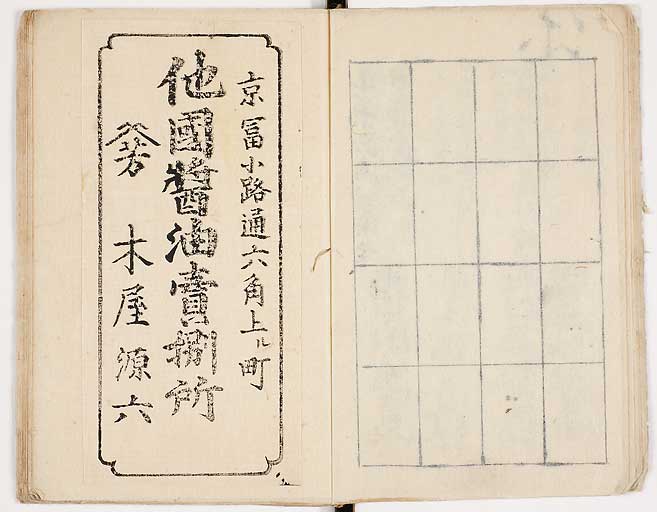 京冨小路通六角上ル町
他國醬油賣捌所
木屋源六